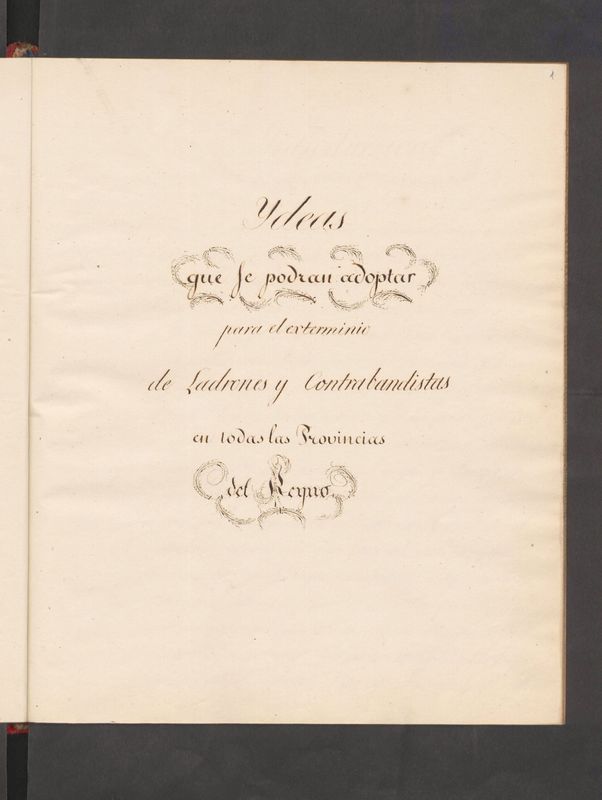 1
Ydeas
que se podran adoptar
para el exterminio
de Ladrones y Contrabandistas
en todas las Provincias
del Reyno